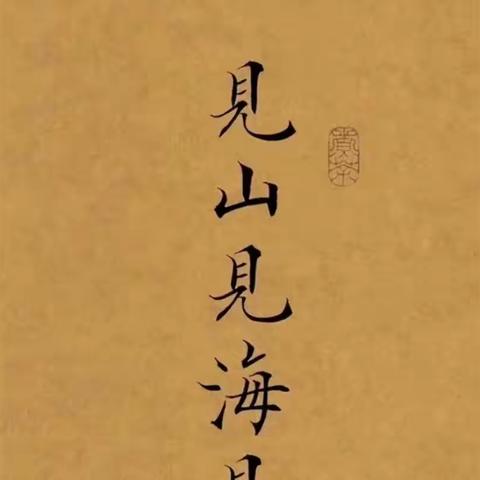 見山見海見